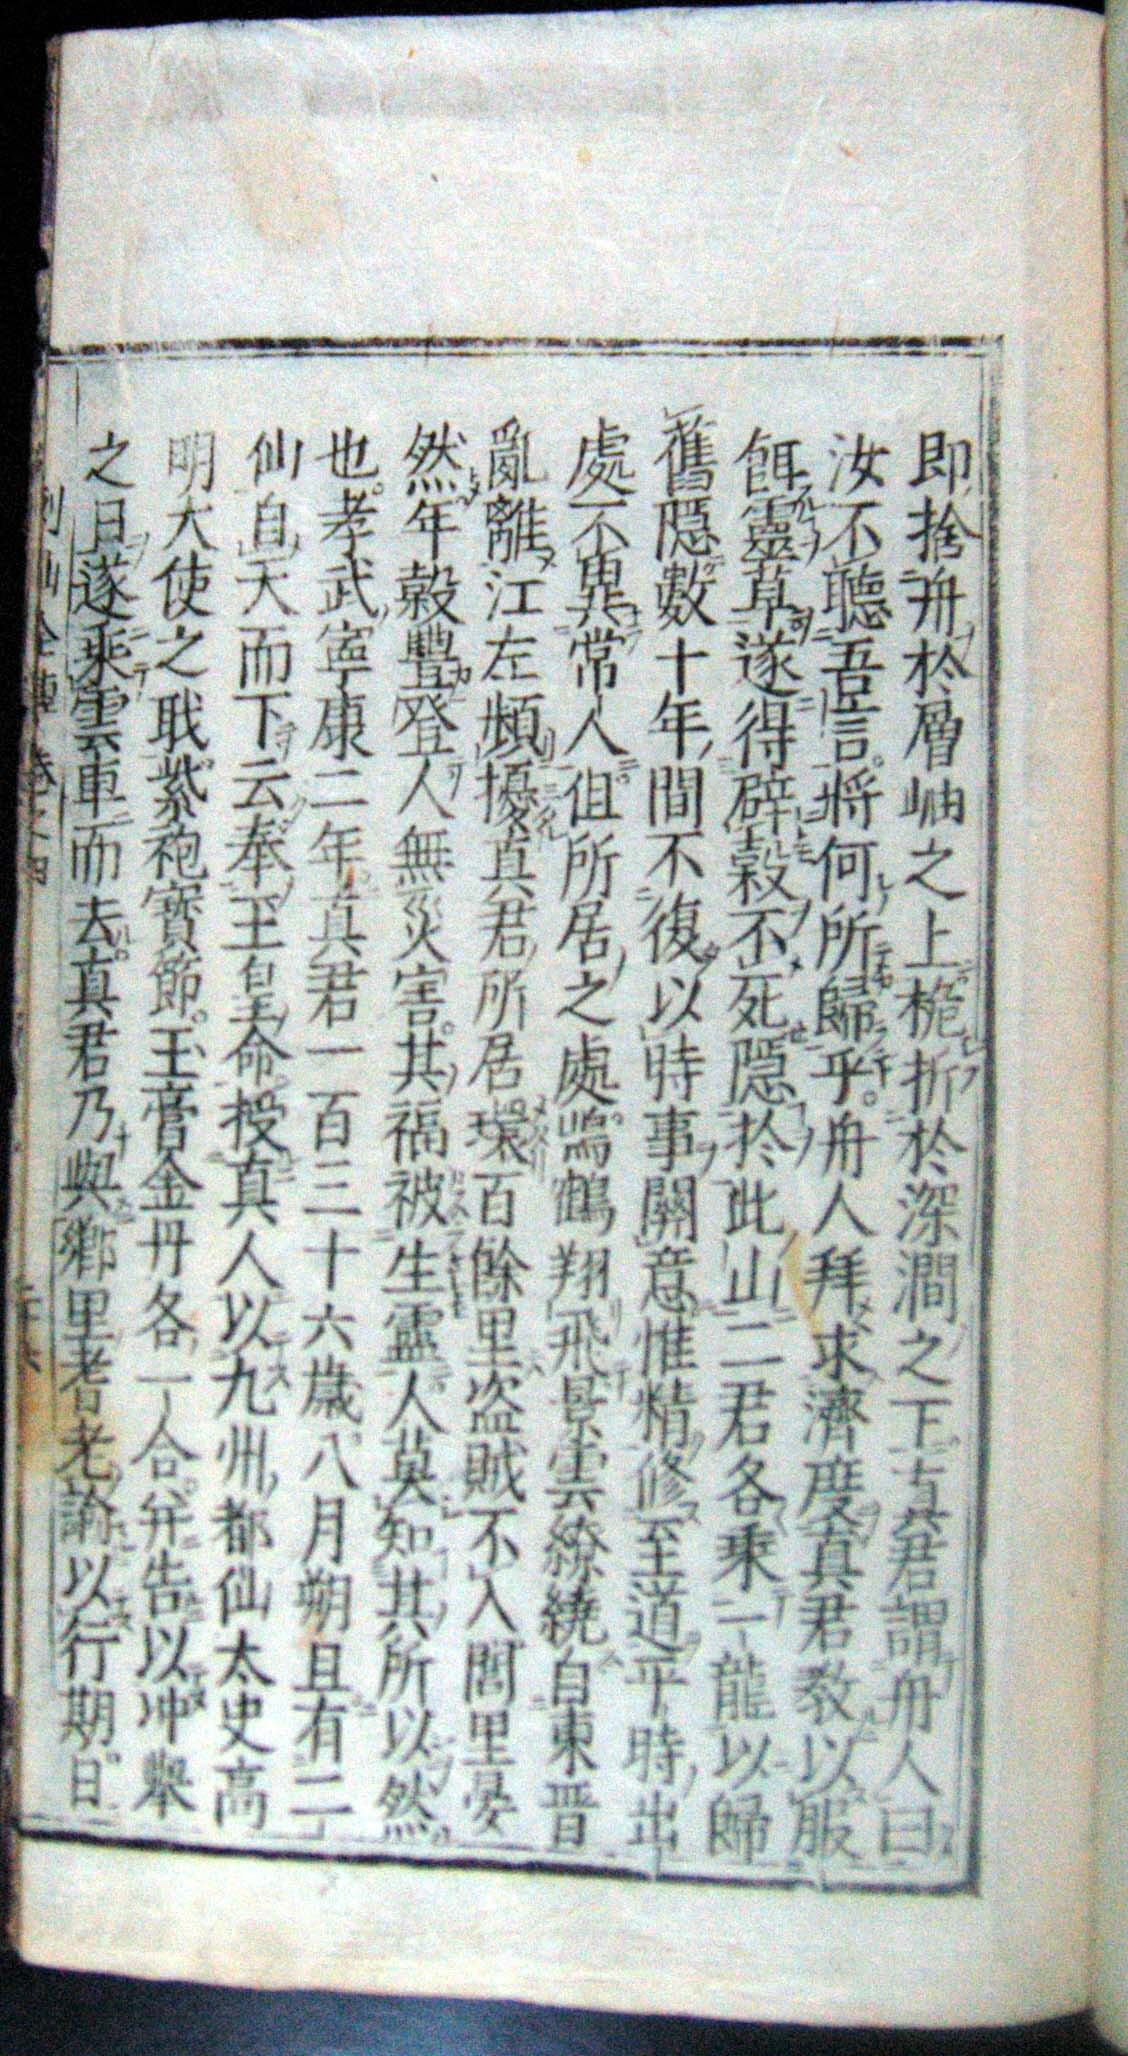 即捨舟於層岫之上桅折於深澗之下真君謂舟人曰
汝不聽吾言將何所歸乎舟人拜求濟度真君教以服
餌靈草遂得辟穀不死隱於此山二君各乘一龍以歸
舊隱數十年間不復以時事關意惟精修至道平時出
處不異常人但所居之處鳴鶴翔飛景雲繚繞自東晋
亂離江左頻擾真君所居環百餘里盗賊不入閭里晏
然年穀豐登人無災害其福被生靈人莫知其所以然
也孝武寧康二年真君一百三十六歲八月朔旦有二
仙自天而下云奉玉皇命授真人以九州都仙太史高
明大使之職紫袍寳節玉膏金丹各一合并告以冲舉
之日遂乘雲車而去真君乃與鄉里耆老諭以行期日
列仙全傳卷之四